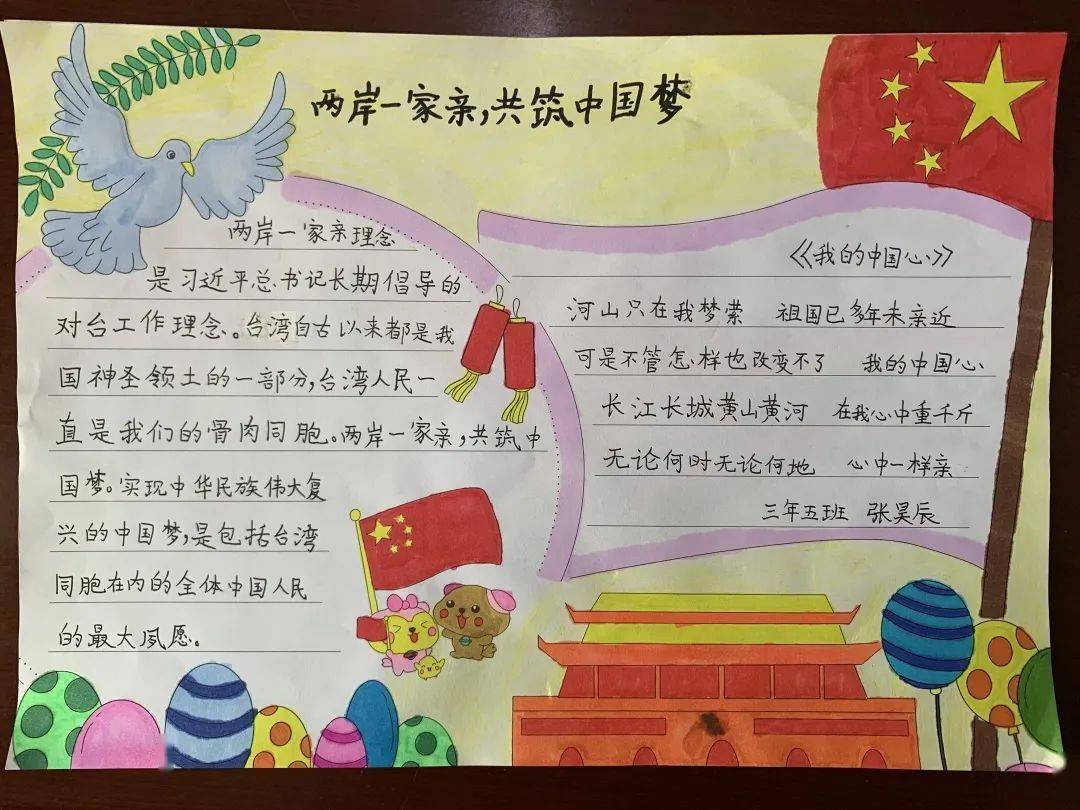 两岸一家亲,共筑中国梦
两岸一家亲理念
是习近平总书记长期倡导的
对台工作理念。台湾自古以来都是我
国神圣领土的一部分,台湾人民一
直是我们的骨肉同胞。两岸一家亲,共筑中
国梦。实现中华民族伟大复
兴的中国梦,是包括台湾
同胞在内的全体中国人民
的最大夙愿。
《我的中国心》
河山只在我梦萦 祖国已多年未亲近
可是不管怎样也改变不了 我的中国心
长江长城黄山黄河 在我心中重千斤
无论何时无论何地 心中一样亲
三年五班 张昊辰